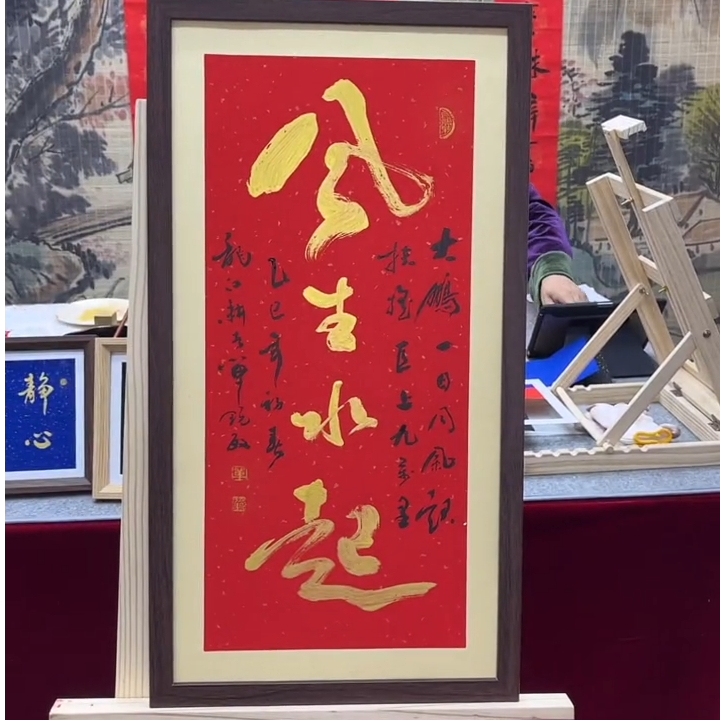 大鵬一日同風起
扶搖直上九萬里
风生水起
乙巳年初春
龍江
静心